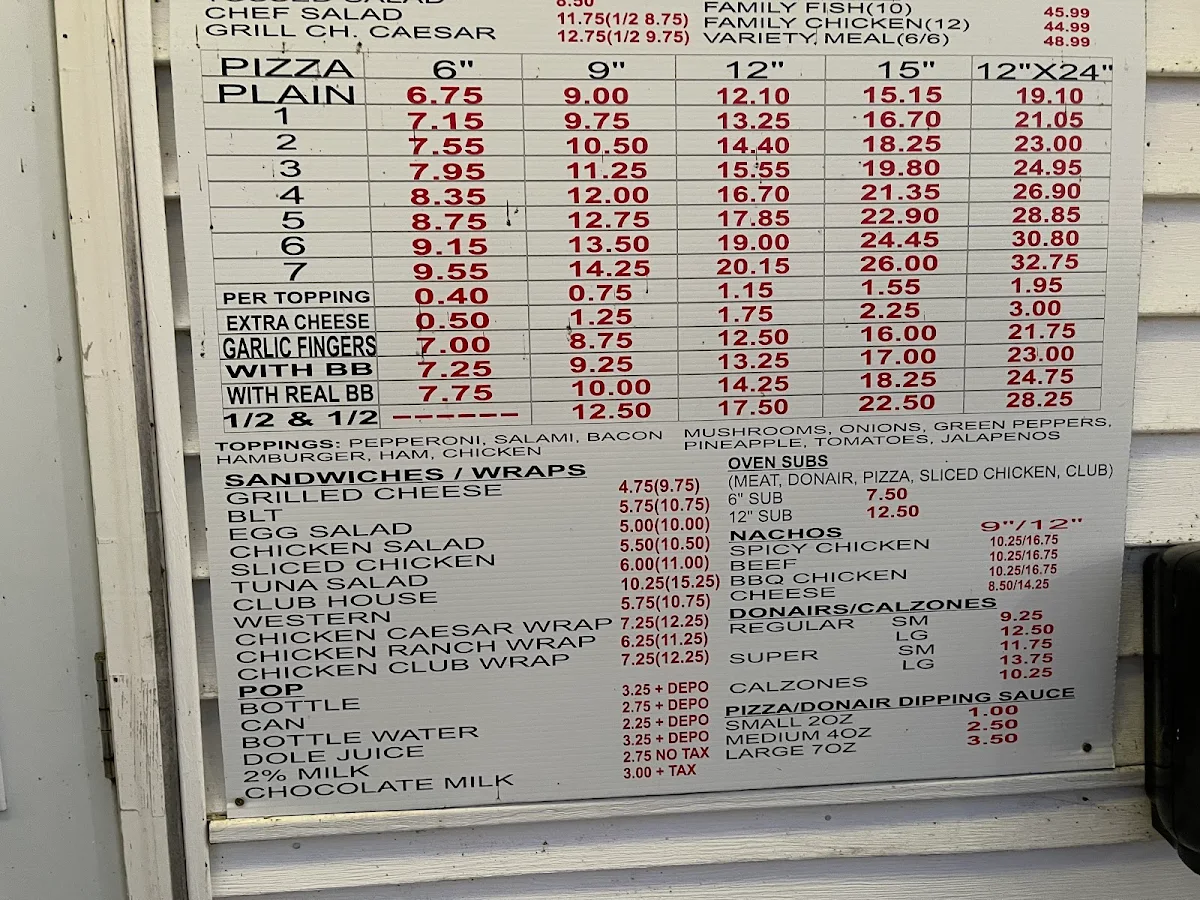 CHEF SALAD 11.75(1/2 8.75)
GRILL CH. CAESAR 12.75(1/2 9.75)
FAMILY FISH(10) 45.99
FAMILY CHICKEN(12) 44.99
VARIETY MEAL(6/6) 48.99
PIZZA 6" 9" 12" 15" 12"X24"
PLAIN 6.75 9.00 12.10 15.15 19.10
1 7.15 9.75 13.25 16.70 21.05
2 7.55 10.50 14.40 18.25 23.00
3 7.95 11.25 15.55 19.80 24.95
4 8.35 12.00 16.70 21.35 26.90
5 8.75 12.75 17.85 22.90 28.85
6 9.15 13.50 19.00 24.45 30.80
7 9.55 14.25 20.15 26.00 32.75
PER TOPPING 0.40 0.75 1.15 1.55 1.95
EXTRA CHEESE 0.50 1.25 1.75 2.25 3.00
GARLIC FINGERS 7.00 8.75 12.50 16.00 21.75
WITH BB 7.25 9.25 13.25 17.00 23.00
WITH REAL BB 7.75 10.00 14.25 18.25 24.75
1/2 & 1/2 ------ 12.50 17.50 22.50 28.25
TOPPINGS: PEPPERONI, SALAMI, BACON
HAMBURGER, HAM, CHICKEN
MUSHROOMS, ONIONS, GREEN PEPPERS,
PINEAPPLE, TOMATOES, JALAPENOS
SANDWICHES / WRAPS
GRILLED CHEESE 4.75(9.75)
BLT 5.75(10.75)
EGG SALAD 5.00(10.00)
CHICKEN SALAD 5.50(10.50)
SLICED CHICKEN 6.00(11.00)
TUNA SALAD 10.25(15.25)
CLUB HOUSE 5.75(10.75)
WESTERN
CHICKEN CAESAR WRAP 7.25(12.25)
CHICKEN RANCH WRAP 6.25(11.25)
CHICKEN CLUB WRAP 7.25(12.25)
POP
BOTTLE 3.25 + DEPO
CAN 2.75 + DEPO
BOTTLE WATER 2.25 + DEPO
DOLE JUICE 3.25 + DEPO
2% MILK 2.75 NO TAX
CHOCOLATE MILK 3.00 + TAX
OVEN SUBS
(MEAT, DONAIR, PIZZA, SLICED CHICKEN, CLUB)
6" SUB 7.50
12" SUB 12.50
NACHOS 9"/12"
SPICY CHICKEN 10.25/16.75
BEEF 10.25/16.75
BBQ CHICKEN 10.25/16.75
CHEESE 8.50/14.25
DONAIRS/CALZONES
REGULAR SM 9.25
LG 12.50
SUPER SM 11.75
LG 13.75
CALZONES 10.25
PIZZA/DONAIR DIPPING SAUCE
SMALL 2OZ 1.00
MEDIUM 4OZ 2.50
LARGE 7OZ 3.50